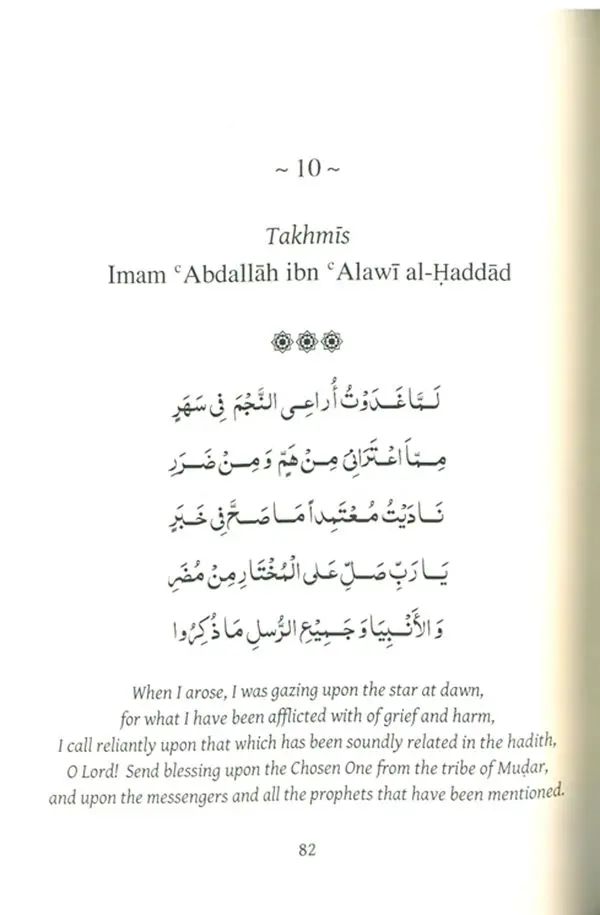 ~ 10 ~
Takhmīs
Imam ᶜAbdallāh ibn ᶜAlawī al-Ḥaddād
لَمَّا غَدَوْتُ أُرَاعِى النَّجْمَ فِى سَهَرٍ
مِمَّا اعْتَرَانِى مِنْ هَمٍّ وَمِنْ ضَرَرِ
نَادَيْتُ مُعْتَمِداً مَا صَحَّ فِى خَبَرٍ
يَا رَبِّ صَلِّ عَلَى الْمُخْتَارِ مِنْ مُضَرِ
وَالأَنْبِيَا وَجَمِيْعِ الرُّسلِ مَا ذُكِرُوا
When I arose, I was gazing upon the star at dawn,
for what I have been afflicted with of grief and harm,
I call reliantly upon that which has been soundly related in the hadith,
O Lord! Send blessing upon the Chosen One from the tribe of Muḍar,
and upon the messengers and all the prophets that have been mentioned.
82